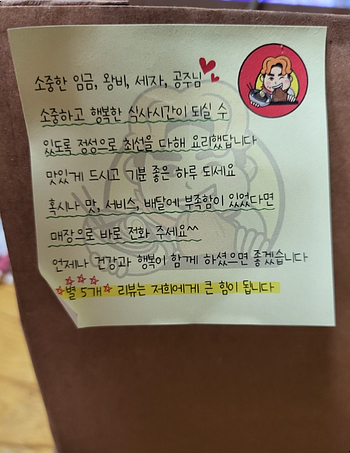 소중한 임금, 왕비, 세자, 공주님
소중하고 행복한 식사시간이 되실 수
있도록 정성으로 최선을 다해 요리했답니다
맛있게 드시고 기분 좋은 하루 되세요
혹시나 맛, 서비스, 배달에 부족함이 있었다면
매장으로 바로 전화 주세요~^
언제나 건강과 행복이 함께 하셨으면 좋겠습니다
별 5개 리뷰는 저희에게 큰 힘이 됩니다